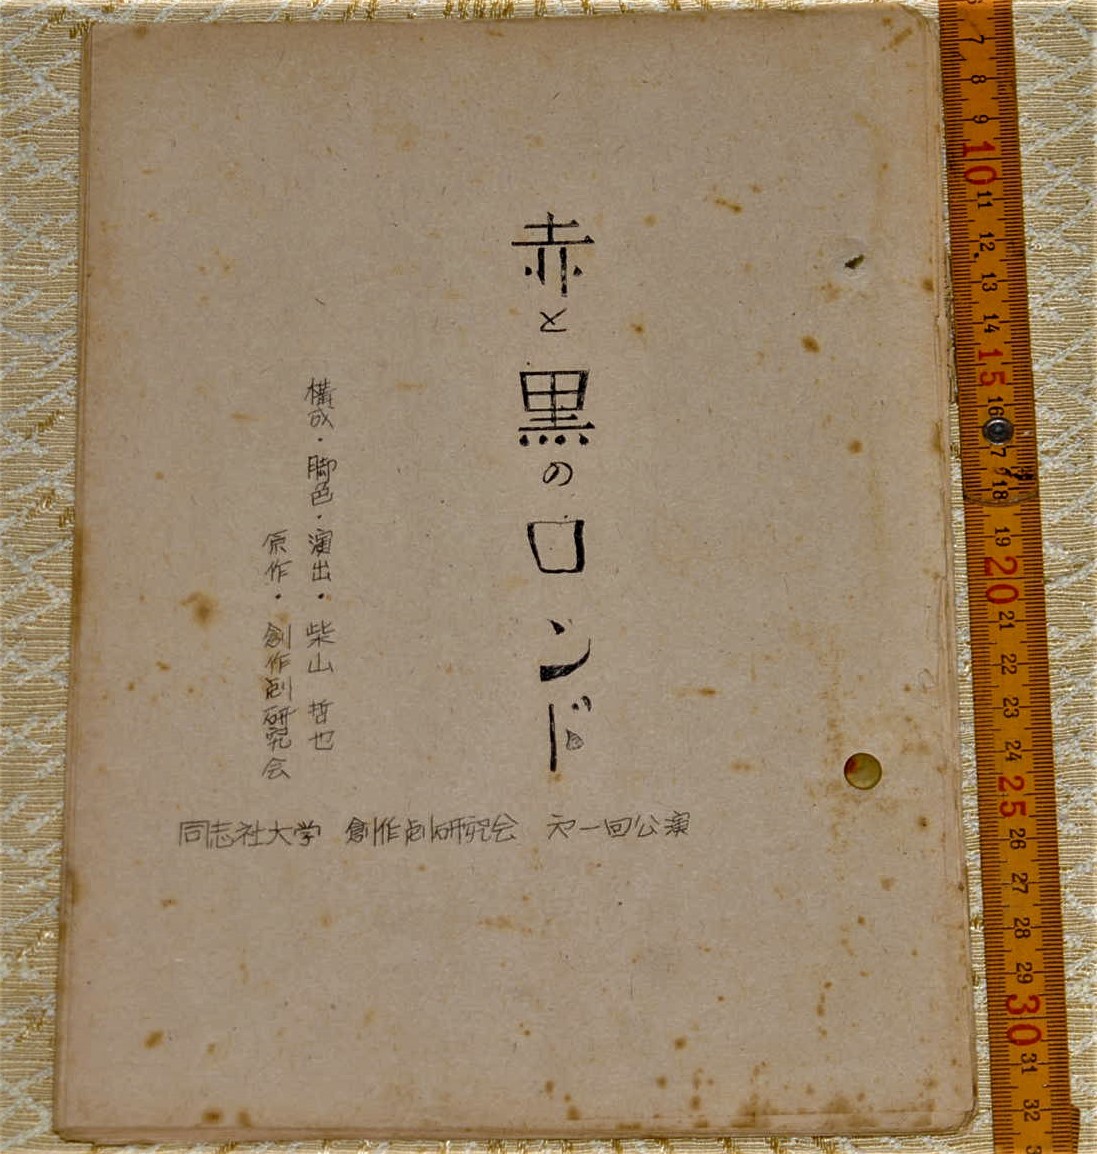 赤と黒のロンド
構成・脚色・演出・柴山 哲也
原作・創作劇研究会
同志社大学 創作劇研究会 才一回公演
7
8
9
10
11
12
13
14
15
16
17
18
19
20
21
22
23
24
25
26
27
28
29
30
31
32